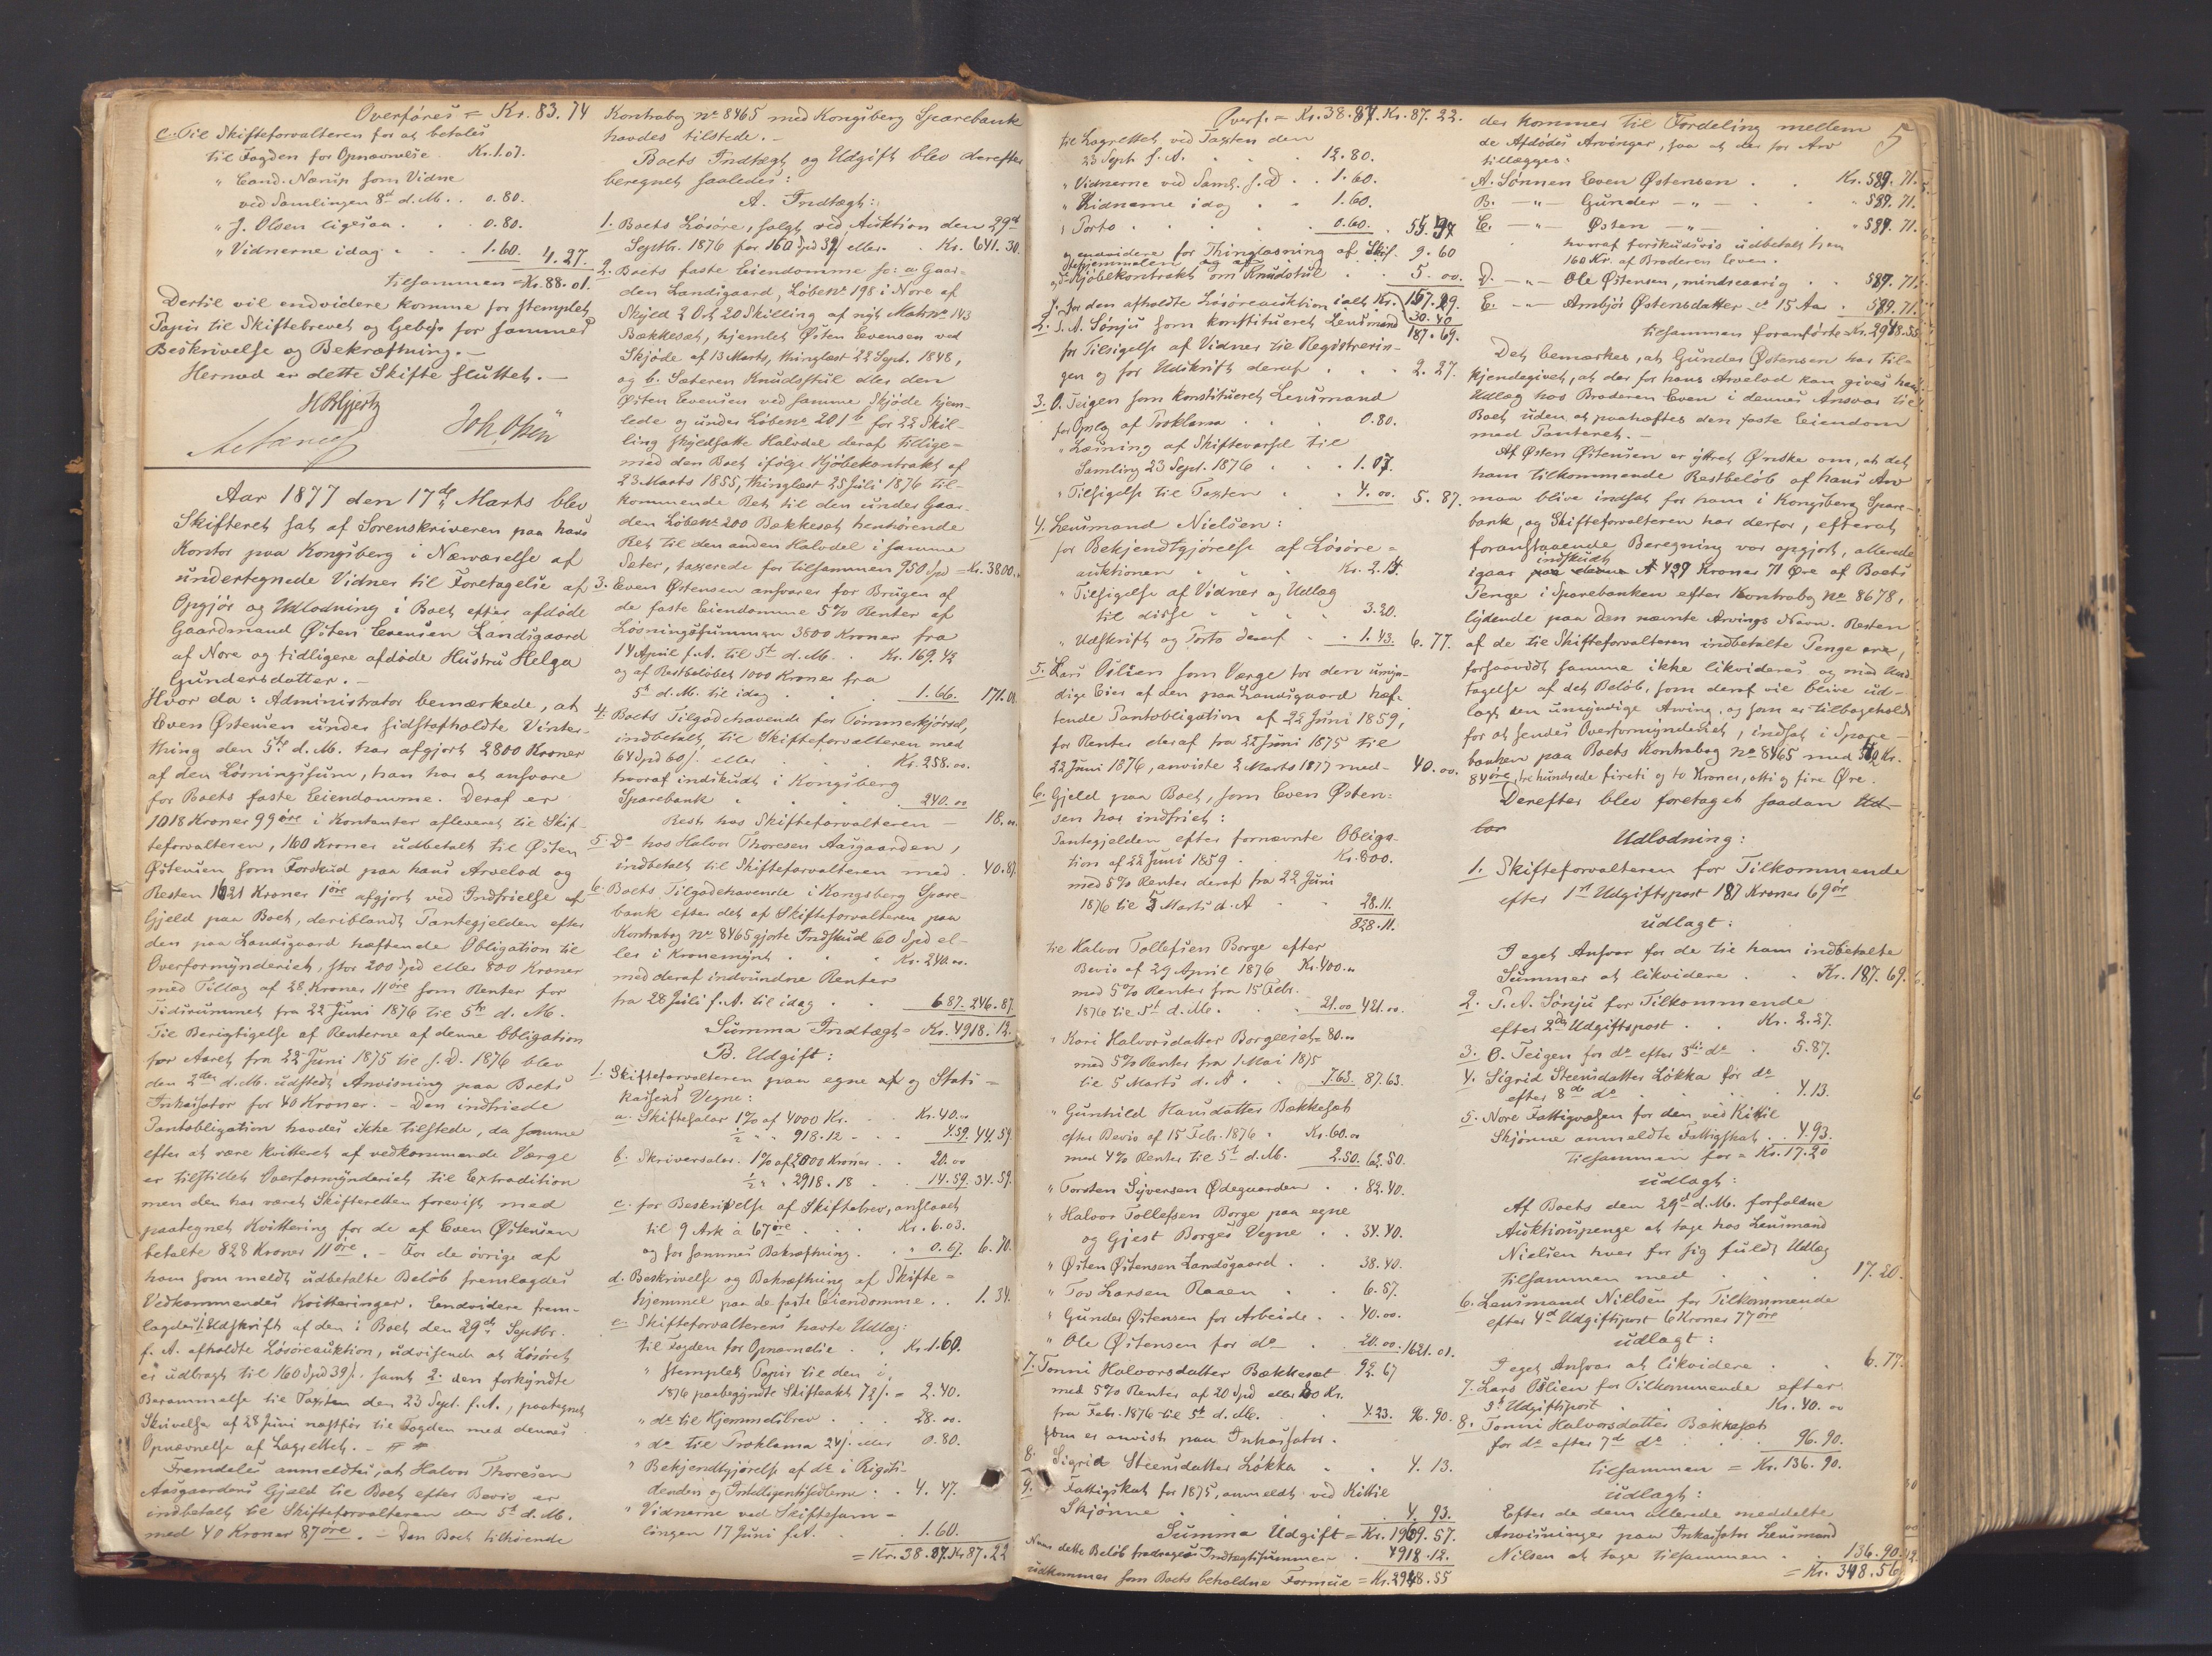 Overføres = Kr. 83.74
c. Til Skifteforvalteren for at betales
til Fogden for Opnævnelse Kr. 1.07.
" Cand. Nærup som Vidne
ved Samlingen 8d d. M. . 0.80.
" J. Olsen ligesaa . . 0.80.
" Vidnerne idag . . 1.60. 4.27.
tilsammen = Kr. 88.01.
Dertil vil endvidere komme for stemplet
Papir til Skiftebrevet og Gebyr for sammes
Beskrivelse og Bekræftning. —
Hermed er dette Skifte sluttet. —
Joh. Olsen
Aar 1877 den 17de Marts blev
Skifteret sat af Sorenskriveren paa hans
Kontor paa Kongsberg i Nærværelse af
undertegnede Vidner til Foretagelse af
Opgjør og Udlodning i Boet efter afdøde
Gaardmand Østen Evensen Landsgaard
af Nore og tidligere afdøde Hustru Helga
Gundersdatter. —
Hvor da: Administrator bemærkede, at
Even Østensen under sidstafholdte Vinter-
thing den 5te d. M. har afgjort 2800 Kroner
af den Løsningssum, han har at ansvare
for Boets faste Eiendomme. Deraf er
1018 Kroner 99 øre i Kontanter afleveret til Skif-
teforvalteren, 160 Kroner udbetalt til Østen
Østensen som Forskud paa hans Arvelod og
Resten 1621 Kroner 1 øre afgjort ved Indfrielse af
Gjeld paa Boet, deriblandt Pantegjelden efter
den paa Landsgaard hæftende Obligation til
Overformynderiet, stor 200 Spd eller 800 Kroner
med Tillæg af 28 Kroner 11 øre som Renter for
Tidsrummet fra 22 Juni 1876 til 5te d. M.
Til Berigtigelse af Renterne af denne Obligation
for Aaret fra 22 Juni 1875 til s. D. 1876 blev
den 2den d. M. udstedt Anvisning paa Boets
Inkassator for 40 Kroner. — Den indfriede
Pantobligation havdes ikke tilstede, da samme
efter at være kvitteret af vedkommende Værge
er tilstillet Overformynderiet til Extradition
men den har været Skifteretten forevist med
paategnet Kvittering for de af Even Østensen
betalte 828 Kroner 11 øre. — For de øvrige af
ham som meldt udbetalte Beløb fremlagdes
Vedkommendes Kvitteringer. Endvidere frem-
lagdes 1. Udskrift af den i Boet den 29de Septbr.
f. A. afholdte Løsøreauktion, udvisende at Løsøret
er udbragt til 160 Spd 39 s. samt 2. den forkyndte
Berammelse til Taxten den 23 Sept. f. A., paategnet
Skrivelse af 28 Juni næstfør til Fogden med dennes
Opnævnelse af Lagrettet. —
Fremdeles anmeldtes, at Halvor Thoresen
Aasgaardens Gjeld til Boet efter Bevis er
indbetalt til Skifteforvalteren den 5te d. M.
med 40 Kroner 87 øre. — Den Boet tilhørende
Kontrabog No 8465 med Kongsberg Sparebank
havdes tilstede. —
Boets Indtægt og Udgift blev derefter
beregnet saaledes:
A. Indtægt:
1. Boets Løsøre, solgt ved Auktion den 29de
Septbr. 1876 for 160 Spd 39 s. eller . Kr. 641.30.
2. Boets faste Eiendomme so: a. Gaar-
den Landsgaard, Løbe No 198 i Nore af
Skyld 2 Ort 20 Skilling af nyt Matr. No 143
Bækkeset, hjemlet Østen Evensen ved
Skjøde af 13 Marts, thinglæst 22 Sept. 1848,
og b. Sæteren Knudsstul eller den
Østen Evensen ved samme Skjøde hjem-
lede og under Løbe No 201 b for 22 Skil-
ling skyldsatte Halvdel deraf tillige-
med den Boet ifølge Kjøbekontrakt af
23 Marts 1855, thinglæst 25 Juli 1876 til-
kommende Ret til den under Gaar-
den Løbe No 200 Bækkeset henhørende
Ret til den anden Halvdel i samme
Seter, taxerede for tilsammen 950 Spd = Kr. 3800.
3. Even Østensen ansvarer for Brugen af
de faste Eiendomme 5% Renter af
Løsningssummen 3800 Kroner fra
14 April f. A. til 5te d. M. . Kr. 169.42
og af Restbeløbet 1000 Kroner fra
5te d. M. til idag . . 1.66. 171.08
4. Boets Tilgodehavende for Tømmerkjørsel,
indbetalt til Skifteforvalteren med
64 Spd 60 s. eller . . Kr. 258.00.
hvoraf indskudt i Kongsberg
Sparebank . . . 240.00
Rest hos Skifteforvalteren — 18.00
5. Do hos Halvor Thoresen Aasgaarden,
indbetalt til Skifteforvalteren med . 40.87
6. Boets Tilgodehavende i Kongsberg Spare-
bank efter det af Skifteforvalteren paa
Kontrabog No 8465 gjorte Indskud 60 Spd el-
ler i Kronemynt . . Kr. 240.00.
med deraf indvundne Renter
fra 28 Juli f. A. til idag . . 6.87. 246.87
Summa Indtægt = Kr. 4918.12.
B. Udgift:
1. Skifteforvalteren paa egne og Stats-
kassens Vegne:
a. Skiftesalar 1% af 4000 Kr. . Kr. 40.00
½ " " 918.12 . . 4.59. 44.59.
b. Skriversalar. 1% af 2000 Kroner . 20.00
½ " " 2918.18 . 14.59. 34.59.
c. for Beskrivelse af Skiftebrev, anslaaet
til 9 Ark à 67 øre . . Kr. 6.03.
og for sammes Bekræftning . . " 0.67. 6.70.
d. Beskrivelse og Bekræftning af Skifte-
hjemmel paa de faste Eiendomme . . 1.34.
e. Skifteforvalterens havte Udlæg:
til Fogden for Opnævnelse . . Kr. 1.60.
" stemplet Papir til den i
1876 paabegyndte Skifteakt 72 s. = 2.40.
" do til Hjemmelsbrev . . . 28.00.
" do til Proklama 24 s. eller 0.80.
" Bekjendtgjørelse af do i Rigsti-
denden og Intelligentssedlerne . . 4.47.
" Vidnerne ved Skiftesam-
lingen 17 Juni f. A. . . 1.60.
= Kr. 38.87. Kr. 87.22
Overf. = Kr. 38.87. Kr. 87.22.
til Lagrettet ved Taxten den
23 Sept. f. A. . . . 12.80.
" Vidnerne ved Saml. s. D . . 1.60.
" Vidnerne idag . . 1.60.
i Porto . . . . 0.60. . 55.47
og endvidere for Thinglæsning af Skif-
tehjemmelen . . 9.60
og Kjøbekontrakt om Knudstul . . 5.00.
f. for den afholdte Løsøreauktion ialt Kr. 157.29.
30.40
187.69.
2. T. A. Sønju som konstitueret Lensmand
for Tilsigelse af Vidner til Registrerin-
gen og for Udskrift deraf . . . 2.27.
3. O. Teigen som konstitueret Lensmand
for Opslag af Proklama . . 0.80.
" Læsning af Skiftevarsel til
Samling 23 Sept. 1876 . . . 1.07.
" Tilsigelse til Taxten . . 4.00. 5.87.
4. Lensmand Nielsen:
for Bekjendtgjørelse af Løsøre-
auktionen . . . Kr. 2.14.
" Tilsigelse af Vidner og Udlæg
til disse . . . 3.20.
" Udskrift og Porto deraf . . 1.43. 6.77.
5. Lars Øslien som Værge for den umyn-
dige Eier af den paa Landsgaard hæf-
tende Pantobligation af 22 Juni 1859,
for Renter deraf fra 22 Juni 1875 til
22 Juni 1876, anviste 2 Marts 1877 med — 40.00.
6. Gjeld paa Boet, som Even Østen-
sen har indfriet:
Pantegjelden efter fornævnte Obliga-
tion af 22 Juni 1859 . Kr. 800.
med 5% Renter deraf fra 22 Juni
1876 til 5 Marts d. A . . 28.11.
828.11.
til Halvor Tollefsen Borge efter
Bevis af 29 April 1876 Kr. 400.00
med 5% Renter fra 15 Febr.
1876 til 5te d. M. . . 21.00 421.00.
" Kari Halvorsdatter Borgeeiet = 80.00
med 5% Renter fra 1 Mai 1875
til 5 Marts d. A. . . 7.63. 87.63.
" Gunhild Hansdatter Bækkeset
efter Bevis af 15 Febr. 1876 . Kr. 60.00
med 4% Renter til 5te d. M. 2.50. 62.50.
" Torsten Syversen Ødegaarden . . 82.40.
" Halvor Tollefsen Borge paa egne
og Gjest Borges Vegne . . 34.40.
" Østen Østensen Landsgaard . . 38.40.
" Tov Larsen Raaen . . 6.57.
" Gunder Østensen for Arbeide . . 40.00.
" Ole Østensen for do . . 20.00. 1621.01.
7. Tonni Halvorsdatter Bækkeset 92.67
med 5% Renter af 20 Spd eller 80 Kr.
fra Febr. 1876 til 5te d. M. . 4.23. 96.90.
som er anvist paa Inkassator.
8. Sigrid Steensdatter Løkka . . 4.13.
9. Fattigskat for 1875, anmeldt ved Kittil
Skjønne . . . . 4.93.
Summa Udgift = Kr. 1969.57.
Naar dette Beløb fradrages Indtægtssummen . 4918.12.
udkommer som Boets beholdne Formue = Kr. 2948.55
der kommer til Fordeling mellem 5
de Afdødes Arvinger, saa at der for Arv
tillægges:
A. Sønnen Even Østensen . . Kr. 589.71.
B. — " — Gunder — " — . . " 589.71.
C. — " — Østen — " — . . " 589.71.
hvoraf forskudsvis udbetalt ham
160 Kr. af Broderen Even.
D. — " — Ole Østensen, mindreaarig . . 589.71.
E. — " — Ambjør Østensdatter 15 Aar . 589.71.
tilsammen foranførte Kr. 2948.55.
Det bemærkes, at Gunder Østensen har til-
kjendegivet, at der for hans Arvelod kan gives ham
Udlæg hos Broderen Even i dennes Ansvar til
Boet uden at paahæftes den faste Eiendom
med Panteret. —
Af Østen Østensen er ytret Ønske om, at det
ham tilkommende Restbeløb af hans Arv
maa blive indsat for ham i Kongsberg Spare-
bank, og Skifteforvalteren har derfor, efterat
foranstaaende Beregning var opgjort, allerede
igaar indskudt 429 Kroner 71 Øre af Boets
Penge i Sparebanken efter Kontrabog No 8678,
lydende paa den nævnte Arvings Navn. Resten
af de til Skifteforvalteren indbetalte Penge ere,
forsaavidt samme ikke likvideres og med Und-
tagelse af det Beløb, som deraf vil blive ud-
lagt den umyndige Arving, og som er tilbageholdt
for at sendes Overformynderiet, indsat i Spare-
banken paa Boets Kontrabog No 8465 med 342 Kr.
84 øre, tre hundrede firti og to Kroner, otti og fire Øre.
Derefter blev foretaget saadan
Udlodning:
1. Skifteforvalteren for Tilkommende
efter 1ste Udgiftspost 187 Kroner 69 øre
udlagt:
I eget Ansvar for de til ham indbetalte
Summer at likvidere . . Kr. 187.69.
2. T. A. Sønju for Tilkommende
efter 2den Udgiftspost . . Kr. 2.27.
3. O. Teigen for do efter 3die do . 5.87.
4. Sigrid Steensdatter Løkka for do
efter 8de do . . . 4.13.
5. Nore Fattigvæsen for den ved Kittil
Skjønne anmeldte Fattigskat . . 4.93.
Tilsammen for = Kr. 17.20
udlagt:
Af Boets den 29de d. M. forfaldne
Auktionspenge at tage hos Lensmand
Nielsen hver for sig fuldt Udlæg
tilsammen med . . . 17.20.
6. Lensmand Nielsen for Tilkommende
efter 4de Udgiftspost 6 Kroner 77 øre
udlagt:
I eget Ansvar at likvidere . . 6.77.
7. Lars Øslien for Tilkommende efter
Udgiftspost . . Kr. 40.00
8. Tonni Halvorsdatter Bækkeset
for do efter 7de do . . 96.90.
tilsammen = Kr. 136.90.
udlagt:
Efter de dem allerede meddelte
Anvisninger paa Inkassator Lensmand
Nilsen at tage tilsammen . . 136.90.
= Kr. 348.56